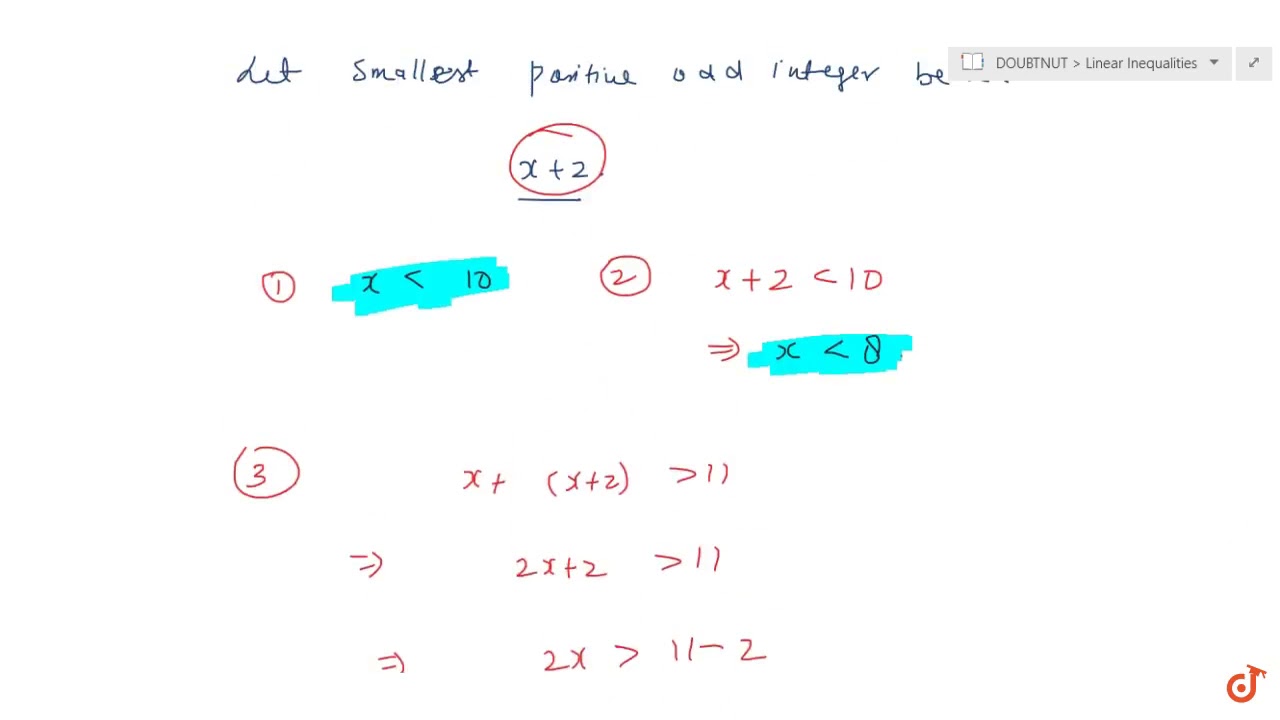 Let smallest positive odd integer be
DOUBTNUT > Linear Inequalities
x + 2
① x < 10 ② x + 2 < 10
⇒ x < 8
③ x + (x+2) > 11
⇒ 2x+2 > 11
⇒ 2x > 11 - 2